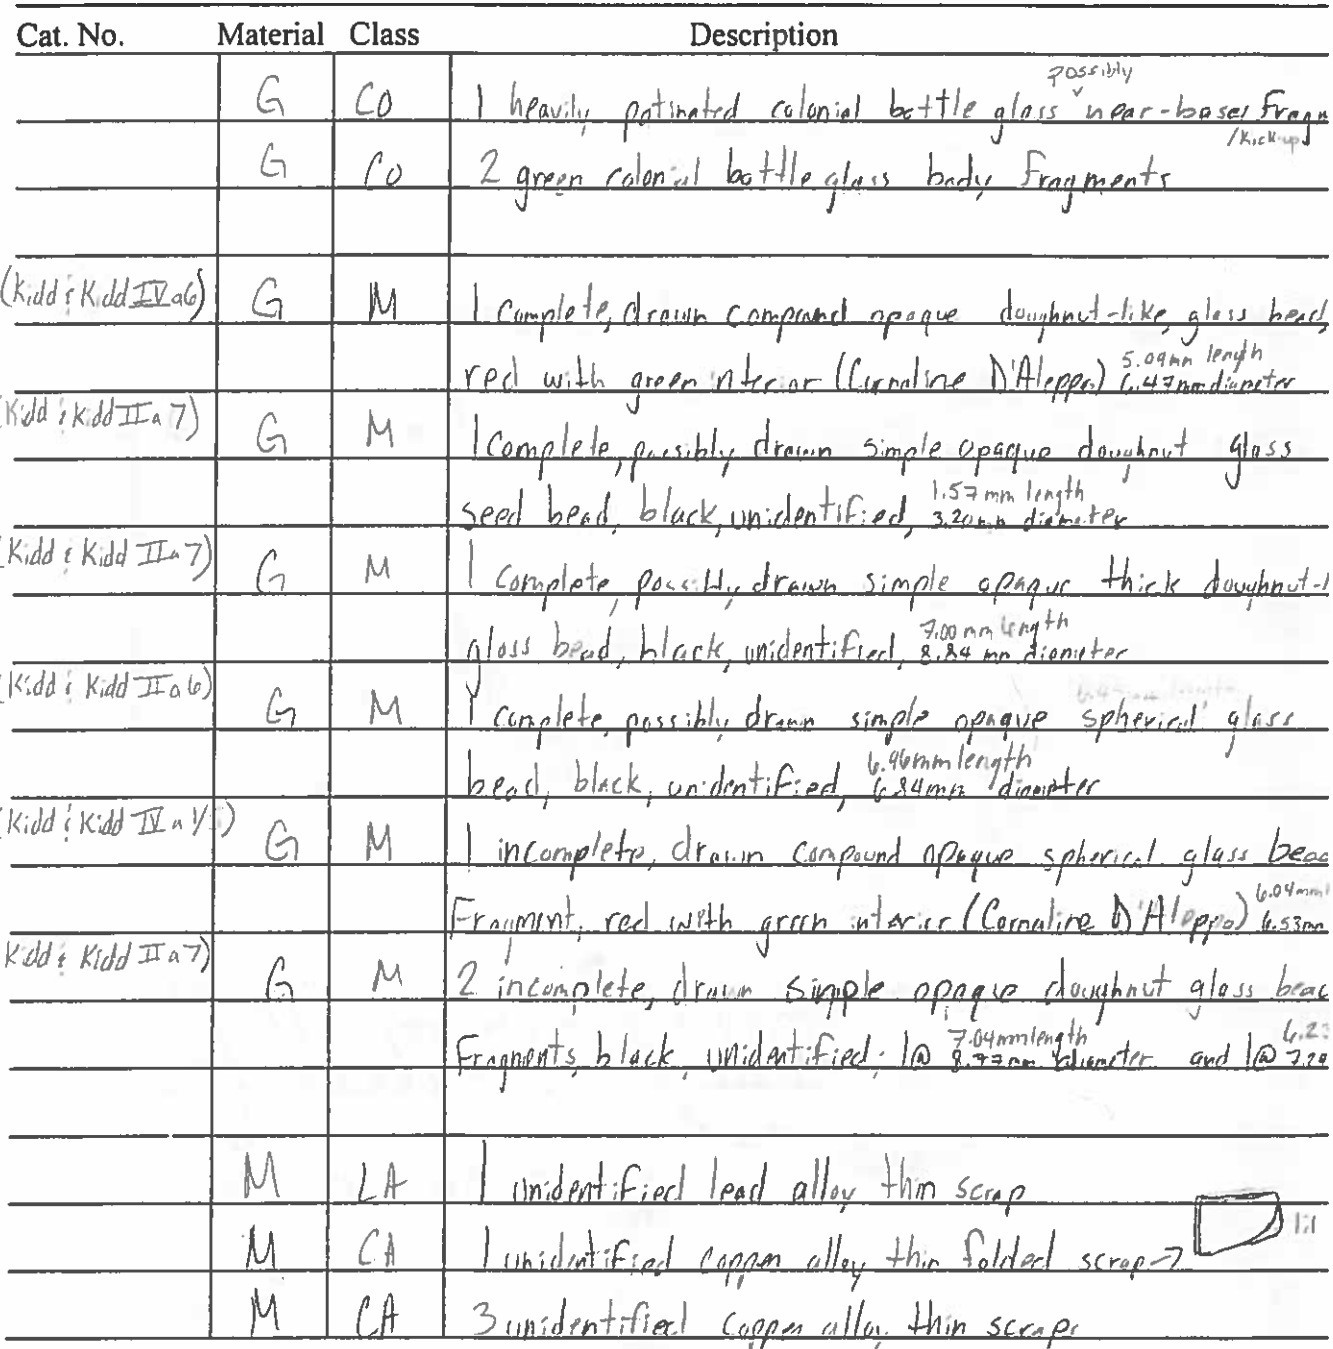 Cat. No. Material Class Description
possibly
G CO 1 heavily patinated colonial bottle glass ˅ near-basel fragm
/kick-up
G CO 2 green colonial bottle glass body fragments
(Kidd & Kidd IVa6) G M 1 complete, drawn compound opaque doughnut-like, glass bead,
red with green interior (Cornaline D'Aleppo) 5.09mm length
6.47mm diameter
(Kidd & Kidd IIa7) G M 1 complete, possibly drawn simple opaque doughnut glass
seed bead, black, unidentified, 1.57mm length
3.20mm diameter
(Kidd & Kidd IIa7) G M 1 complete, possibly drawn simple opaque thick doughnut-l
glass bead, black, unidentified, 7.00mm length
8.84 mm diameter
(Kidd & Kidd IIa6) G M 1 complete, possibly drawn simple opaque spherical glass
bead, black, unidentified, 6.96mm length
6.84mm diameter
(Kidd & Kidd IVa1/5) G M 1 incomplete, drawn compound opaque spherical glass bead
Fragment, red with green interior (Cornaline D'Aleppo) 6.04mm l
6.53mm
Kidd & Kidd IIa7) G M 2 incomplete, drawn simple opaque doughnut glass bead
Fragments, black, unidentified; 1@ 7.04mm length
8.77mm diameter and 1@ 6.23
7.29
M LA 1 unidentified lead alloy thin scrap
M CA 1 unidentified copper alloy thin folded scrap→ 1:1
M CA 3 unidentified copper alloy thin scraps